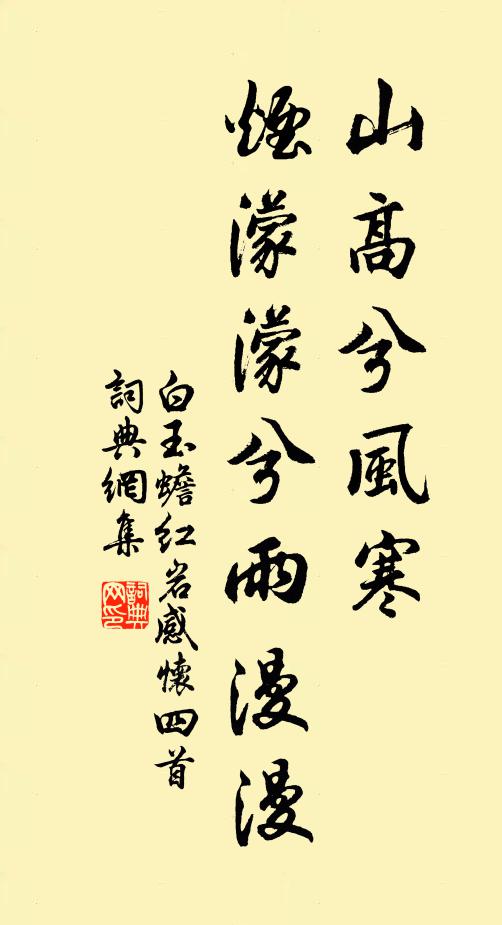 山高兮風寒
煙濛濛兮雨漫漫
白玉蟾红岩感懷四首
詞典網集
詞典网印